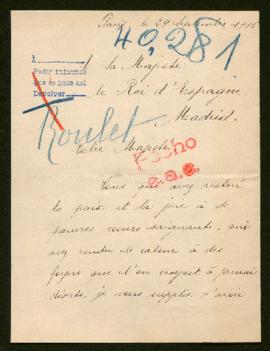 Paris, le 29 Septembre 1916
40,281
A Sa Majesté
le Roi d'Espagne
Madrid.
Pedir informes
que se hace así
Devolver
Roulet
Votre Majesté,
Fecho
e.a.e.
Vous qui avez restoré
la paix et la joie à de
pauvres cœurs saignants, qui
avez rendu le calme à des
foyers que l'on croyait à jamais
déserts, je vous supplie d'avoir